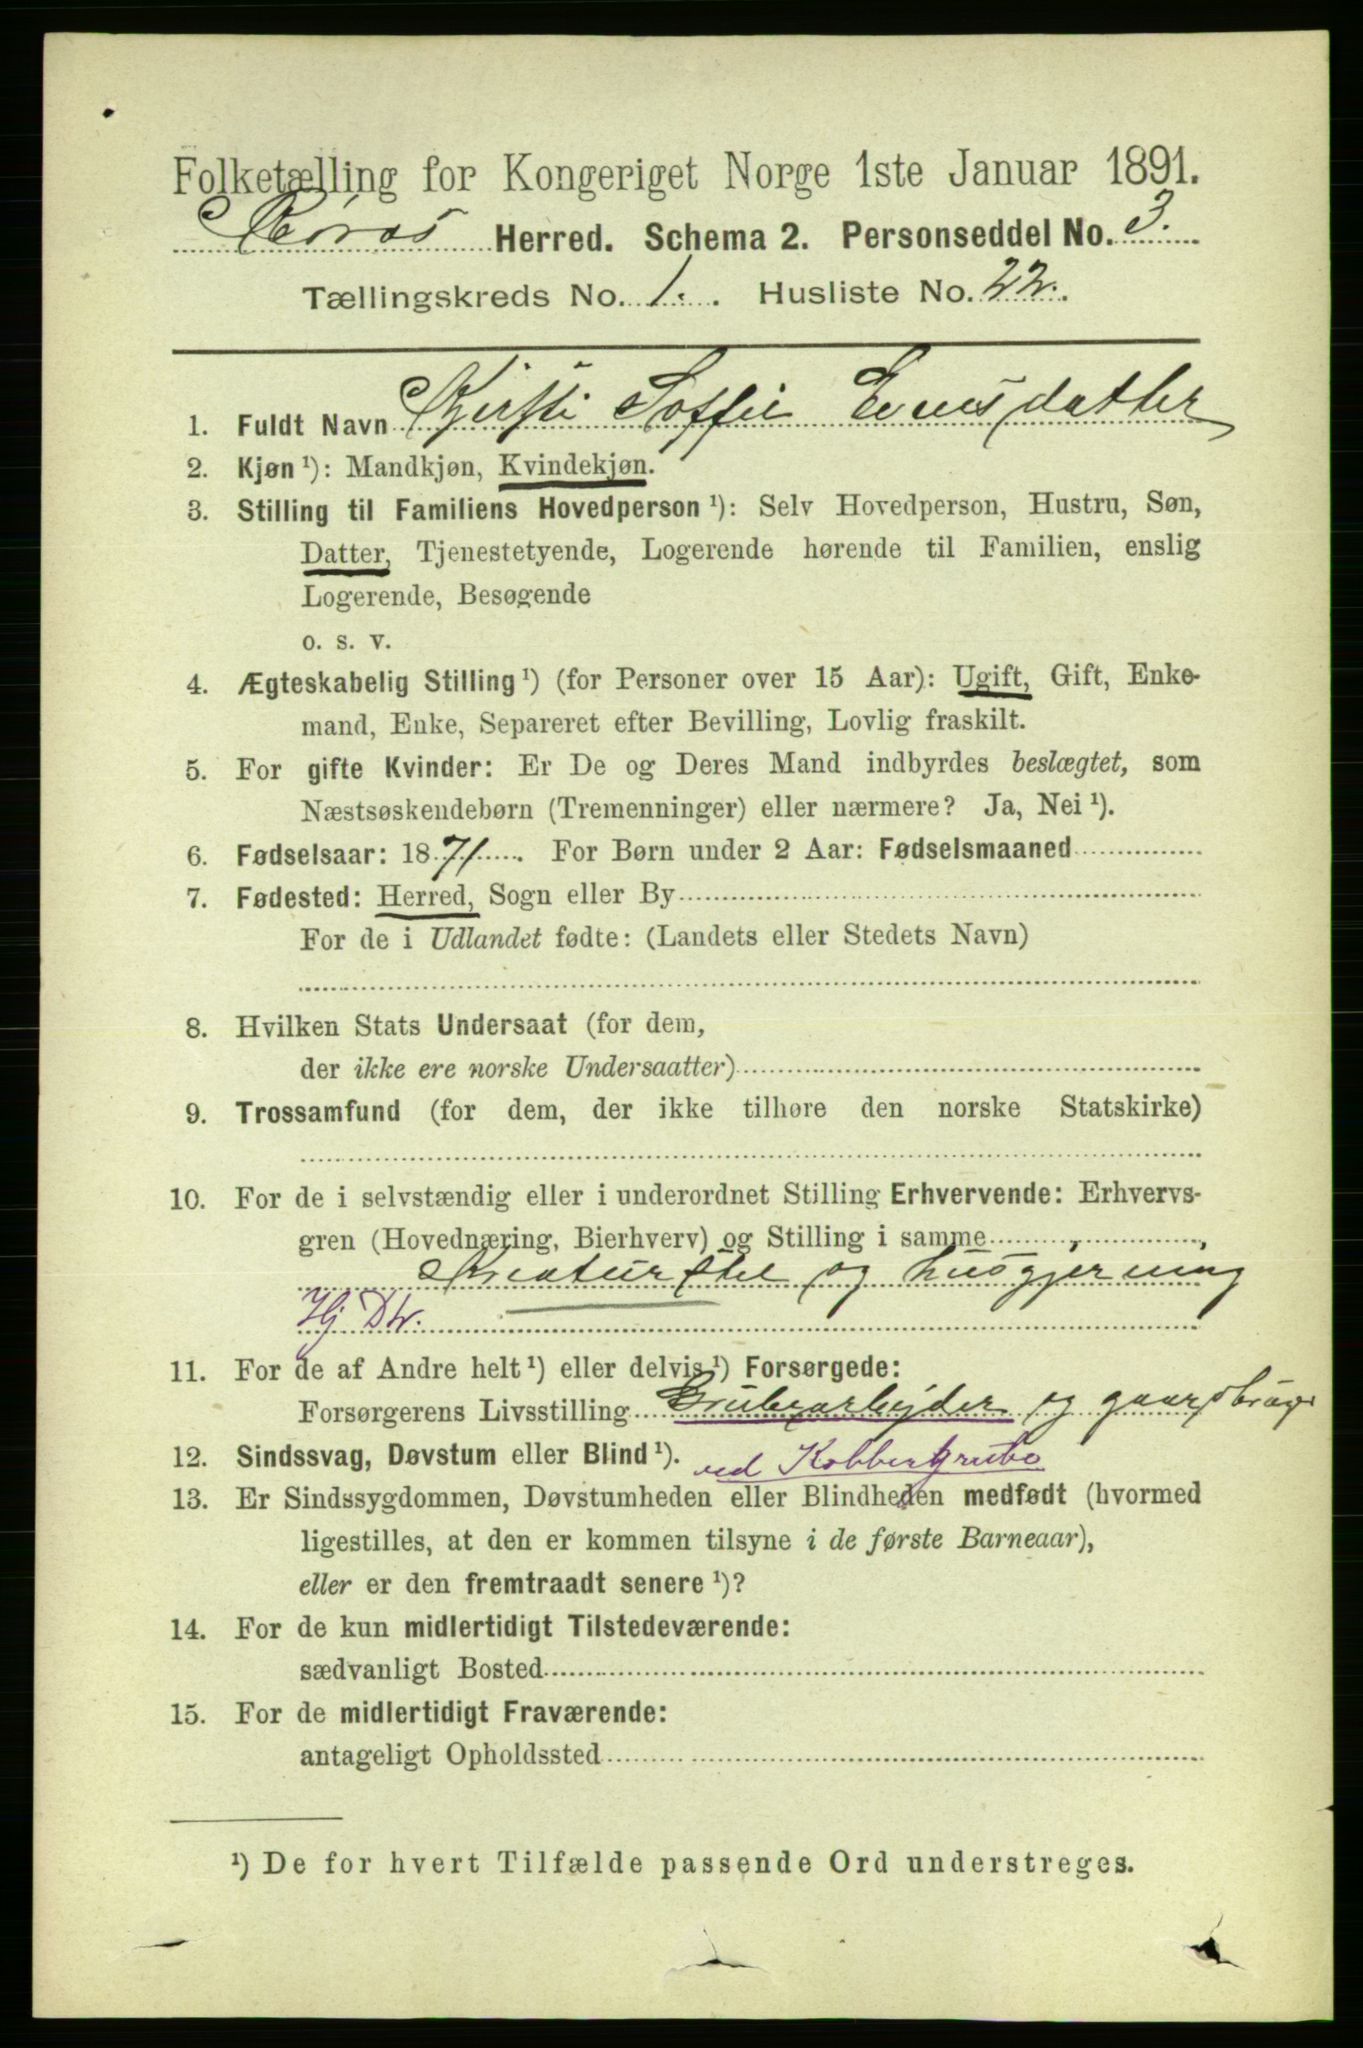 Folketælling for Kongeriget Norge 1ste Januar 1891.
Røros Herred. Schema 2. Personseddel No. 3.
Tællingskreds No. 1. Husliste No. 22.
1. Fuldt Navn Kjersti Soffie Evensdatter
2. Kjøn ¹): Mandkjøn, Kvindekjøn.
3. Stilling til Familiens Hovedperson ¹): Selv Hovedperson, Hustru, Søn,
Datter, Tjenestetyende, Logerende hørende til Familien, enslig
Logerende, Besøgende
o. s. v.
4. Ægteskabelig Stilling ¹) (for Personer over 15 Aar): Ugift, Gift, Enke-
mand, Enke, Separeret efter Bevilling, Lovlig fraskilt.
5. For gifte Kvinder: Er De og Deres Mand indbyrdes beslægtet, som
Næstsøskendebørn (Tremenninger) eller nærmere? Ja, Nei ¹).
6. Fødselsaar: 1871. For Børn under 2 Aar: Fødselsmaaned
7. Fødested: Herred, Sogn eller By
For de i Udlandet fødte: (Landets eller Stedets Navn)
8. Hvilken Stats Undersaat (for dem,
der ikke ere norske Undersaatter)
9. Trossamfund (for dem, der ikke tilhøre den norske Statskirke)
10. For de i selvstændig eller i underordnet Stilling Erhvervende: Erhvervs-
gren (Hovednæring, Bierhverv) og Stilling i samme
Kreaturstel og husgjerning
Hj Dtr.
11. For de af Andre helt ¹) eller delvis ¹) Forsørgede:
Forsørgerens Livsstilling Grubearbejder og gaardbruger
12. Sindssvag, Døvstum eller Blind ¹). ved Kobbergrube
13. Er Sindssygdommen, Døvstumheden eller Blindheden medfødt (hvormed
ligestilles, at den er kommen tilsyne i de første Barneaar),
eller er den fremtraadt senere ¹)?
14. For de kun midlertidigt Tilstedeværende:
sædvanligt Bosted
15. For de midlertidigt Fraværende:
antageligt Opholdssted
¹) De for hvert Tilfælde passende Ord understreges.